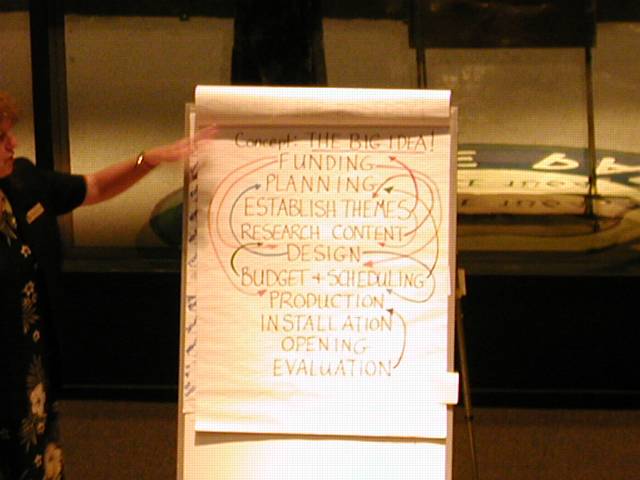 Concept: THE BIG IDEA!
FUNDING
PLANNING
ESTABLISH THEMES
RESEARCH CONTENT
DESIGN
BUDGET + SCHEDULING
PRODUCTION
INSTALLATION
OPENING
EVALUATION